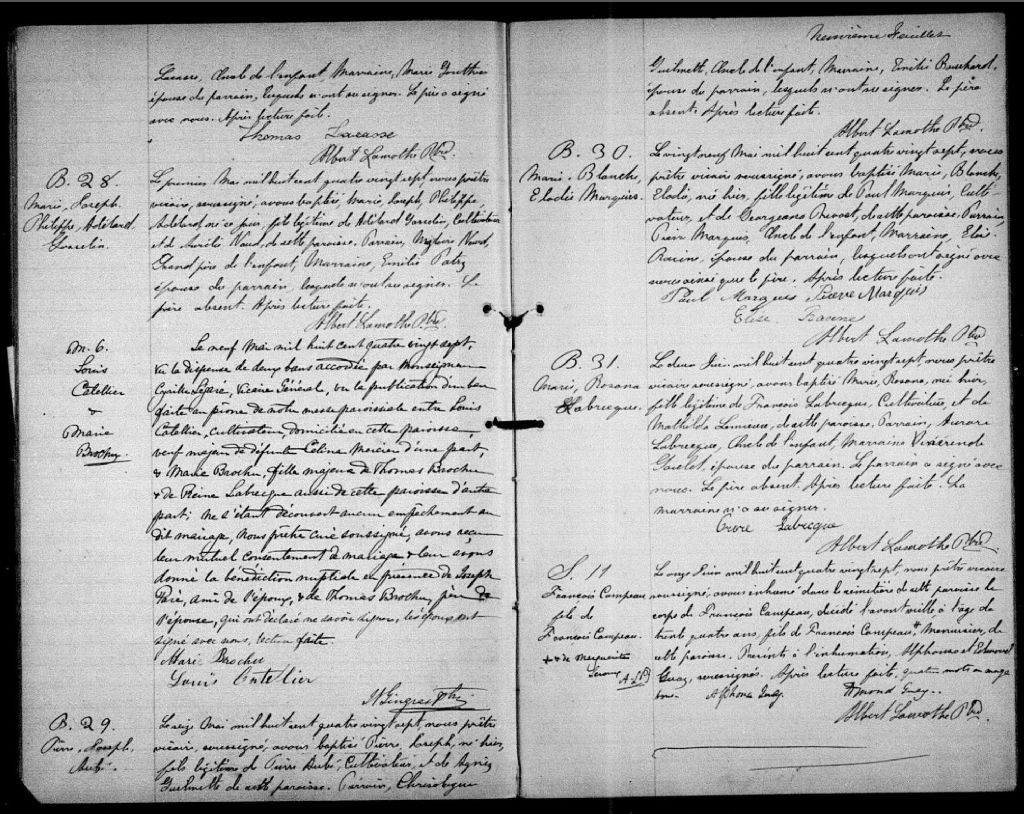 Lacasse, Oncle de l'enfant, Marraine, Marie Gauthier
épouse du parrain, lesquels n'ont su signer. Le père a signé
avec nous. Après lecture faite.
Thomas Lacasse
Albert Lamothe Ptre.
B. 28.
Marie, Joseph.
Philippe, Adélard
Gosselin.
Le premier Mai mil huit cent quatre vingt sept, nous prêtre
vicaire, soussigné, avons baptisé Marie, Joseph, Philippe,
Adélard, né ce jour, fils légitime de Adélard Gosselin, Cultivateur
et de Aurélie Naud, de cette paroisse. Parrain, Naud,
Grand père de l'enfant, Marraine, Emilie Patry
épouse du parrain, lesquels n'ont su signer. Le
père absent. Après lecture faite.
Albert Lamothe Ptre.
M. 6.
Louis
Catellier
&
Marie
Brochu.
Le neuf Mai mil huit cent quatre vingt sept,
vu la dispense de deux bans accordée par Monseigneur
Cyrille Légaré, Vicaire Général, vu la publication d'un ban
faite au prone de notre messe paroissiale entre Louis
Catellier, cultivateur, domicilié en cette paroisse,
veuf majeur de défunte Céline Mercier d'une part,
& Marie Brochu, fille majeure de Thomas Brochu
& de Reine Labrecque aussi de cette paroisse d'autre
part; ne s'étant découvert aucun empêchement au
dit mariage, Nous prêtre curé soussigné, avons reçu
leur mutuel consentement de mariage & leur avons
donné la bénédiction nuptiale en présence de Joseph
Paré, ami de l'époux, & de Thomas Brochu, père de
l'épouse, qui ont déclaré ne savoir signer, les époux ont
signé avec nous, lecture faite
Marie Brochu
Louis Catellier
N Gingras Ptre
B. 29.
Pierre, Joseph,
Aubé.
Le seize Mai mil huit cent quatre vingt sept, nous prêtre
vicaire, soussigné, avons baptisé Pierre, Joseph, né hier,
fils légitime de Pierre Aubé, Cultivateur, et de Agnès
Guilmette de cette paroisse. Parrain, Chrisologue
Neuvième Feuillet
Guilmette, Oncle de l'enfant, Marraine, Emilie Bouchard,
épouse du parrain, lesquels n'ont su signer. Le père
absent. Après lecture faite.
Albert Lamothe Ptre.
B. 30.
Marie-Blanche,
Elodie Marquis.
Le vingt neuf Mai mil huit cent quatre vingt sept, nous
prêtre vicaire soussigné, avons baptisé Marie, Blanche,
Elodie, née hier, fille légitime de Paul Marquis, Culti-
vateur, et de Georgeana Prevost, de cette paroisse. Parrain,
Pierre Marquis, Oncle de l'enfant, Marraine, Elise
Racine, épouse du parrain, lesquels ont signé avec
nous ainsi que le père. Après lecture faite.
Paul Marquis Pierre Marquis
Elise Racine
Albert Lamothe Ptre
B. 31.
Marie, Rosana
Labrecque.
Le deux Juin mil huit cent quatre vingt sept, nous prêtre
vicaire soussigné, avons baptisé Marie, Rosana, née hier,
fille légitime de François Labrecque, Cultivateur, et de
Mathilda Lemieux, de cette paroisse. Parrain, Aurore
Labrecque, Oncle de l'enfant, Marraine
Goulet, épouse du parrain. Le parrain a signé avec
nous. Le père absent. Après lecture faite. La
marraine n'a su signer.
Labrecque
Albert Lamothe Ptre.
S. 11
François Campeau
fils de
François Campeau.
+ & de Marguerite
A. L. Ptre
Le onze Juin mil huit cent quatre vingt sept, nous prêtre vicaire
soussigné, avons inhumé dans le cimetière de cette paroisse le
corps de François Campeau, décédé l'avant veille à l'age de
trente quatre ans, fils de François Campeau+, Menuisier, de
cette paroisse. Présents à l'inhumation, Alphonse et Edmond
Guay, soussignés. Après lecture faite, quatre mots en marge
bons. Alphonse Guay. Edmond Guay.
Albert Lamothe Ptre.